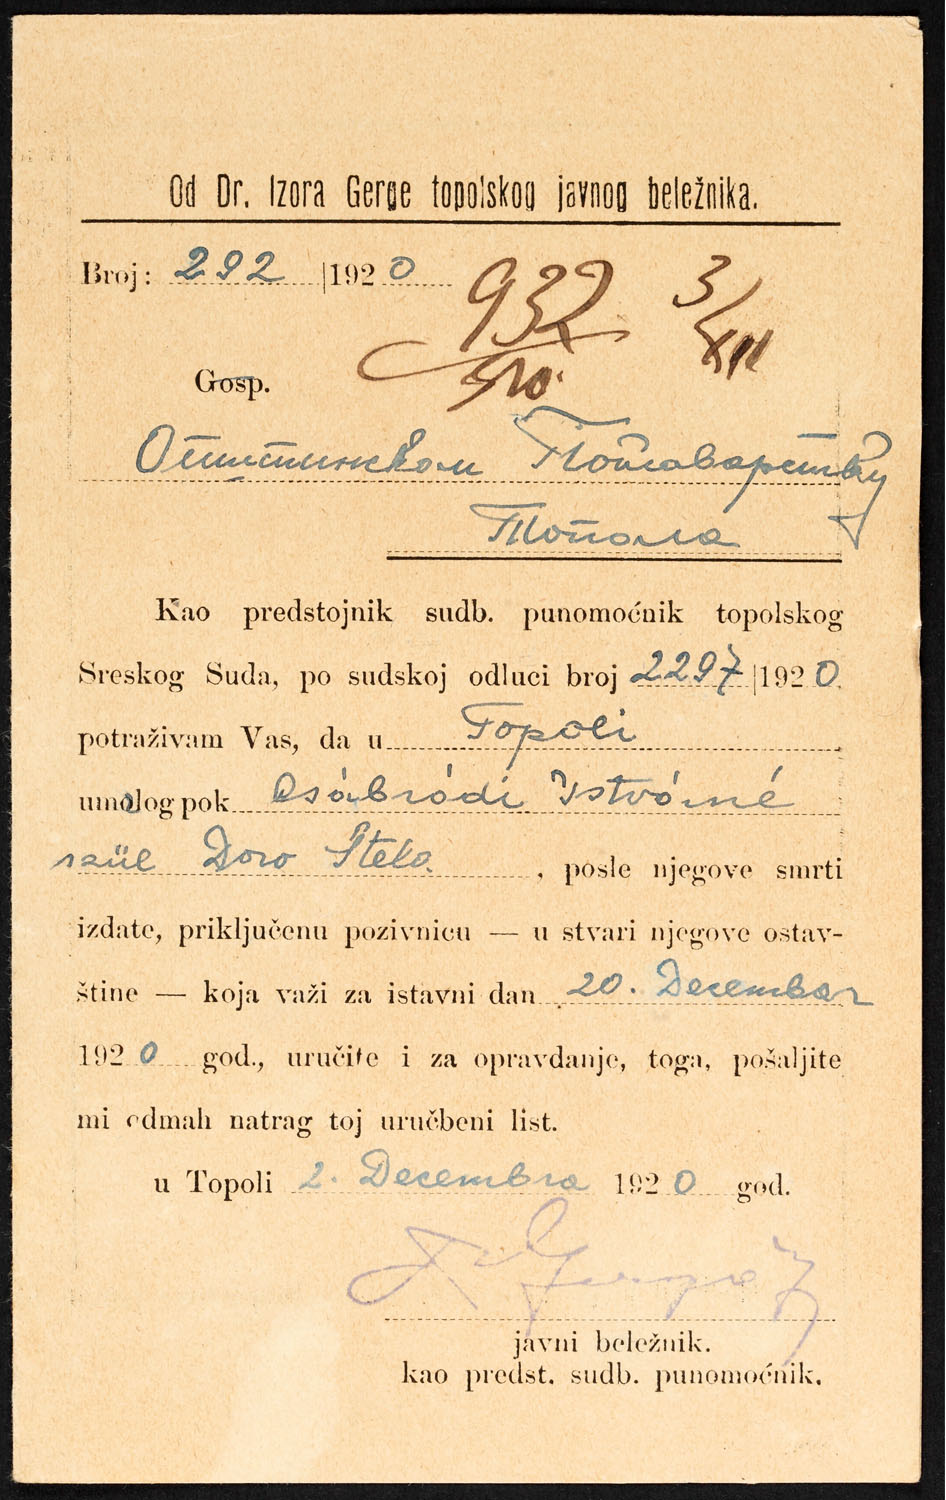 Od Dr. Izora Gerge topolskog javnog beležnika.
Broj: 292 |1920
932 3/XII
Gosp.
Општинском Поглаварству
Топола
Kao predstojnik sudb. punomoćnik topolskog
Sreskog Suda, po sudskoj odluci broj 2297 |1920
potraživam Vas, da u Topoli
umolog pok Csábrádi Istvánné
szül Doro Štela, posle njegove smrti
izdate, priključenu pozivnicu — u stvari njegove ostav-
štine — koja važi za istavni dan 20. Decembar
1920 god., uručite i za opravdanje, toga, pošaljite
mi odmah natrag toj uručbeni list.
u Topoli 2. Decembra 1920 god.
javni beležnik.
kao predst. sudb. punomoćnik.